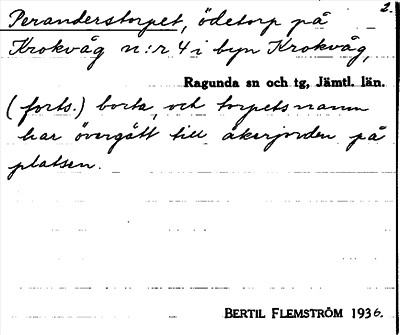 2.
Peranderstorpet, ödetorp på
Krokvåg n:r 4 i byn Krokvåg,
Ragunda sn och tg, Jämtl. län.
(forts.) borta, och torpets namn
har övergått till åkerjorden på
platsen.
BERTIL FLEMSTRÖM 1936.